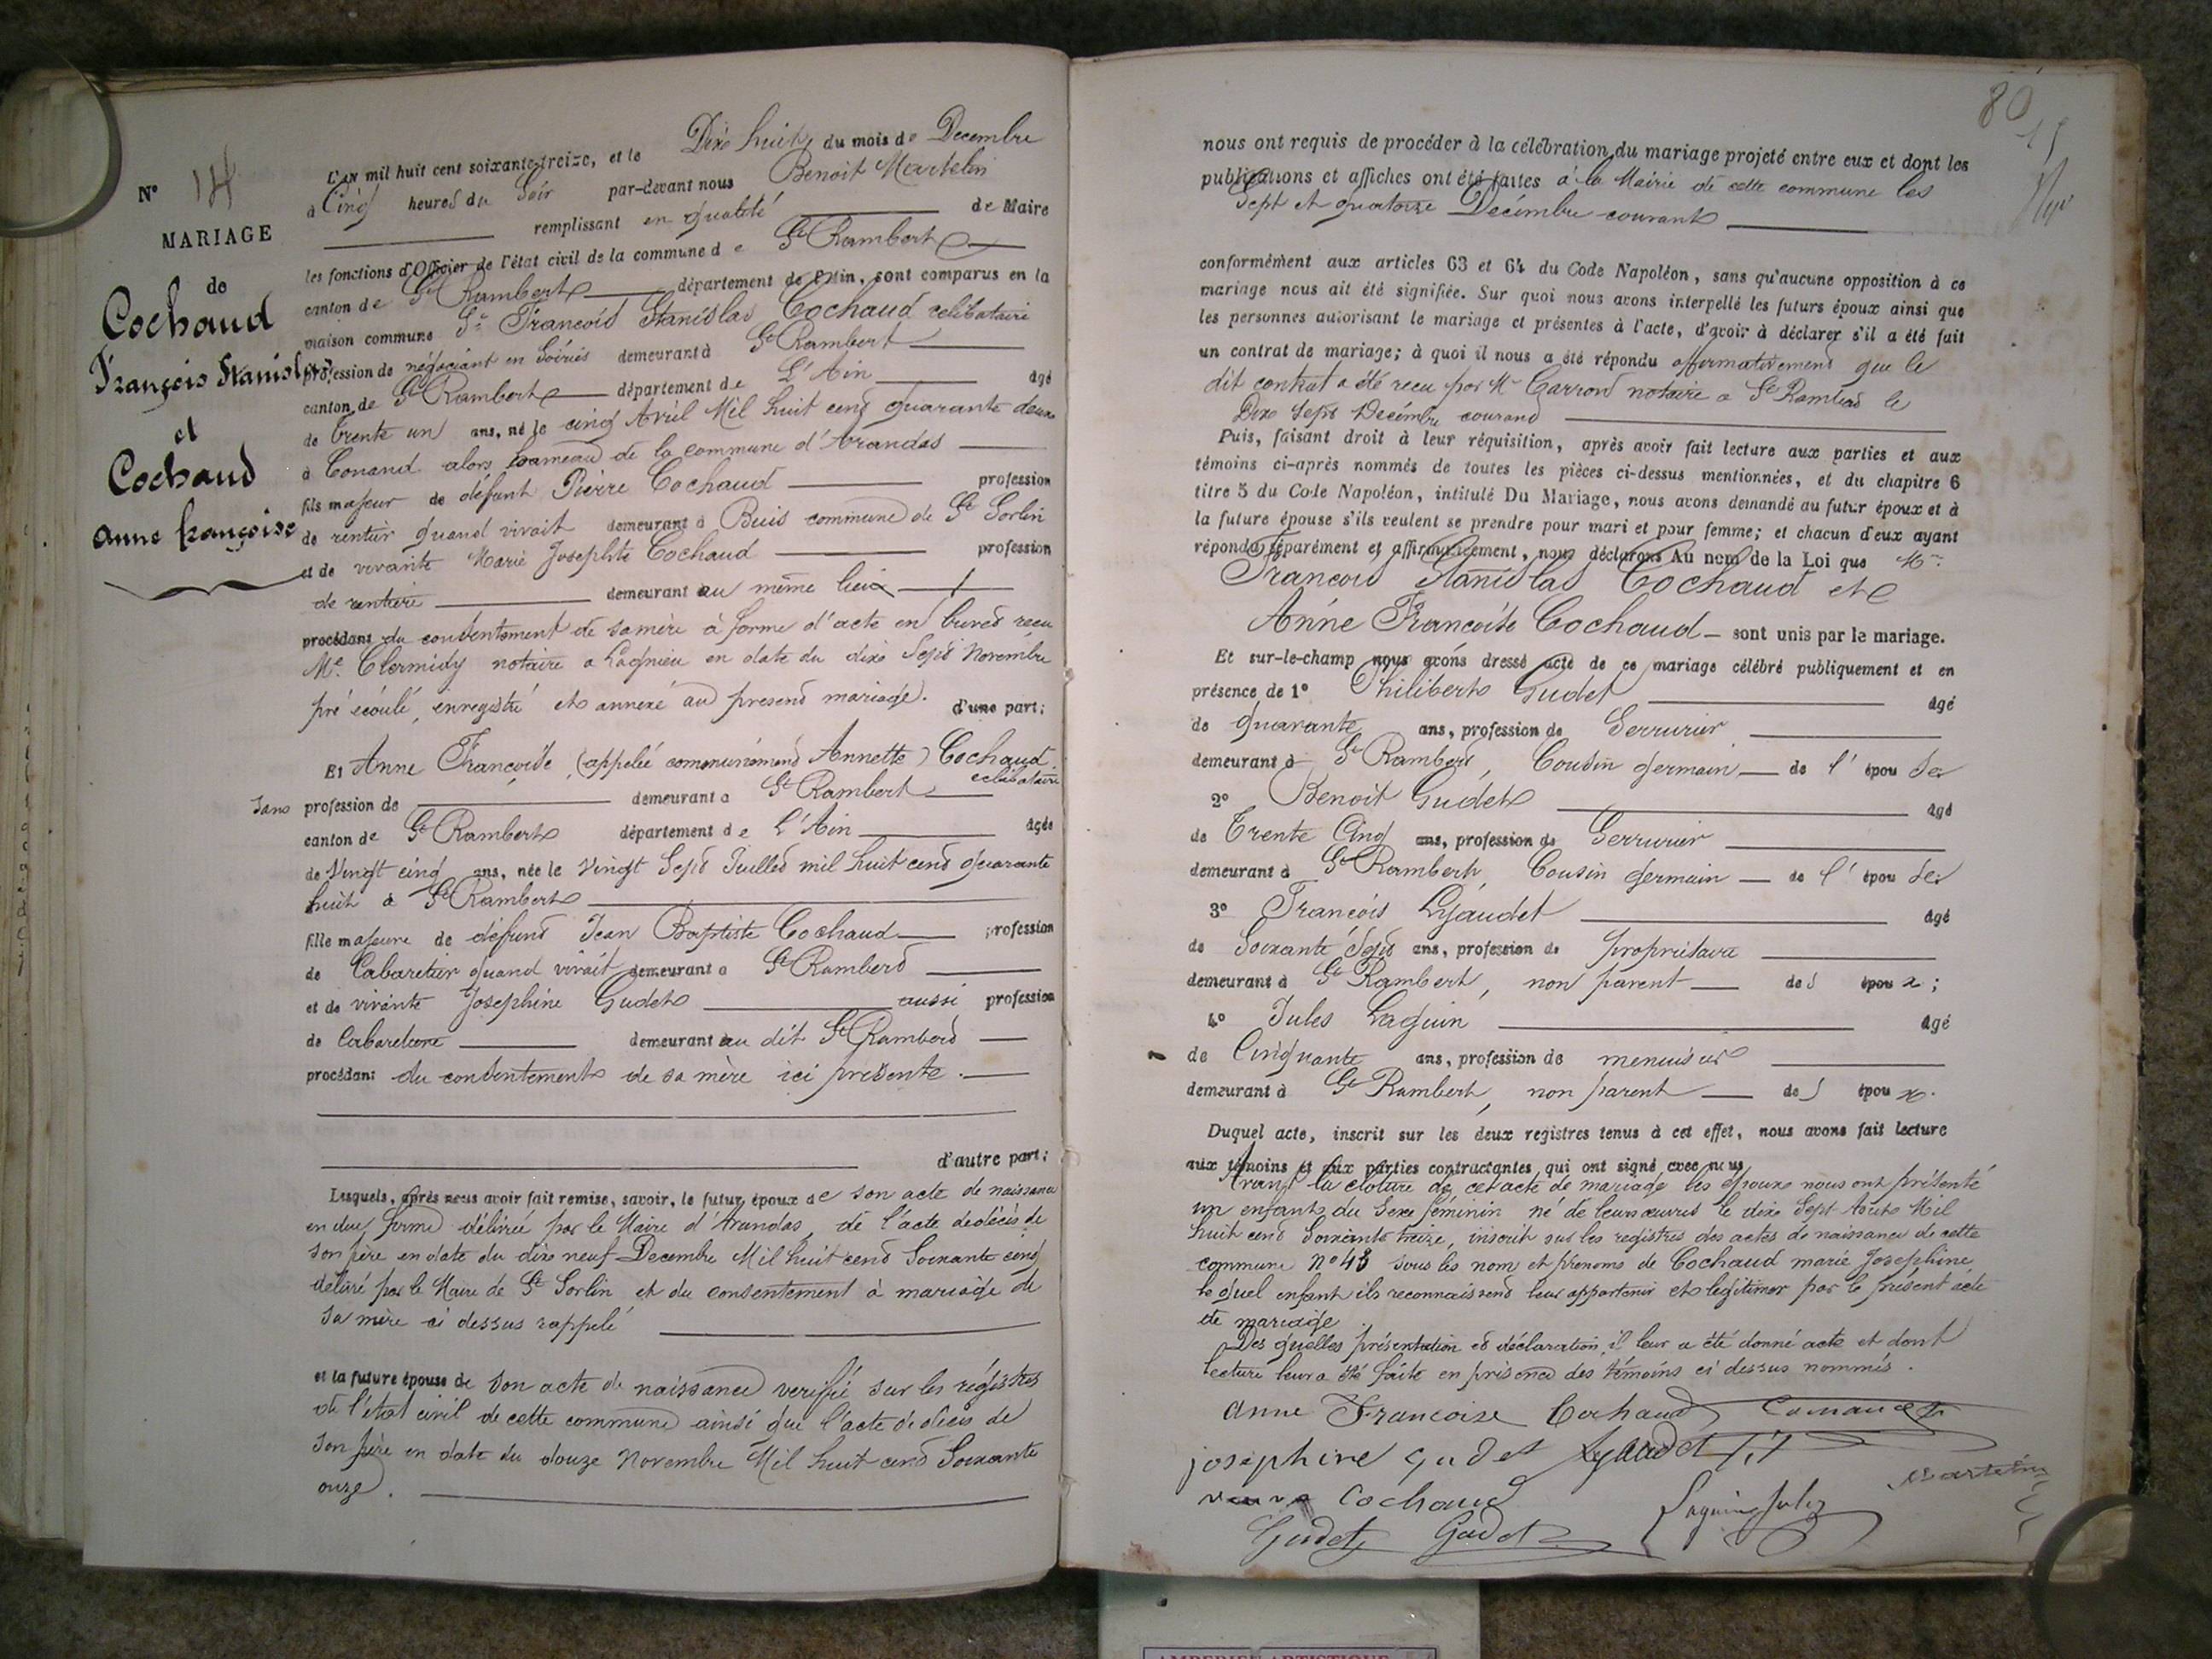 N° 14
MARIAGE
de
Cochaud
François Stanislas
et
Cochaud
anne françoise
L'an mil huit cent soixante-treize, et le Dixe huit du mois de Decembre
à Cinq heures du Soir par-devant nous Benoit Martelin
remplissant en qualité de Maire
les fonctions d'Officier de l'état civil de la commune de St Rambert
canton de St Rambert département de l'Ain, sont comparus en la
maison commune Sr Francois Stanislas Cochaud celibataire
profession de négociant en Soiries demeurant à St Rambert
canton de St Rambert département de L'Ain âgé
de Trente un ans, né le cinq Avril Mil huit cent quarante deux
à Conand alors hameau de la commune d'Arandas
fils majeur de défunt Pierre Cochaud profession
de rentier quand vivait demeurant à Buis commune de St Sorlin
et de vivante Marie Josephte Cochaud profession
de rentière demeurant au même lieu
procédant du consentement de sa mère à forme d'acte en brevet recu
Me. Clermidy notaire a Lagnieu en date du dixe Sept Novembre
pré écoulé, enregistré et annexé au present mariage. d'une part;
Et Anne Françoise (appelée communément Annette) Cochaud
celibataire
sans profession de demeurant a St Rambert
canton de St Rambert département de L'Ain âgée
de Vingt cinq ans, née le vingt Sept Juillet mil huit cent quarante
huit à St Rambert
fille majeure de défunt Jean Baptiste Cochaud profession
de Cabaretier quand vivait demeurant a St Rambert
et de vivante Josephine Gudet aussi profession
de Cabaretiere demeurant au dit St Rambert
procédant du consentement de sa mère ici présente.
d'autre part;
Lesquels, après nous avoir fait remise, savoir, le futur époux de son acte de naissance
en due forme délivrée par le Maire d'Arandas, de l'acte de décès de
son père en date du dixe neuf Decembre Mil huit cent Soixante cinq
délivré par le Maire de St Sorlin et du consentement à mariage de
sa mère ci dessus rappelé
et la future épouse de son acte de naissance verifié sur les régistres
de l'état civil de cette commune ainsi que l'acte de décès de
son père en date du douze Novembre Mil huit cent Soixante
onze.
80
nous ont requis de procéder à la célébration du mariage projeté entre eux et dont les
publications et affiches ont été faites à la Mairie de cette commune les
Sept et quatorze Decémbre courant
conformément aux articles 63 et 64 du Code Napoléon, sans qu'aucune opposition à ce
mariage nous ait été signifiée. Sur quoi nous avons interpellé les futurs époux ainsi que
les personnes autorisant le mariage et présentes à l'acte, d'avoir à déclarer s'il a été fait
un contrat de mariage; à quoi il nous a été répondu affirmativement que le
dit contrat a été recu par Me Carrond notaire a St Rambert le
Dixe Sept Decémbre courand
Puis, faisant droit à leur réquisition, après avoir fait lecture aux parties et aux
témoins ci-après nommés de toutes les pièces ci-dessus mentionnées, et du chapitre 6
titre 5 du Code Napoléon, intitulé Du Mariage, nous avons demandé au futur époux et à
la future épouse s'ils veulent se prendre pour mari et pour femme; et chacun d'eux ayant
répondu séparément et affirmativement, nous déclarons Au nom de la Loi que Mr
Francois Stanislas Cochaud et
Anne Francoise Cochaud sont unis par le mariage.
Et sur-le-champ nous avons dressé acte de ce mariage célébré publiquement et en
présence de 1° Philibert Gudet âgé
de quarante ans, profession de Serrurier
demeurant à St Rambert, Cousin germain de l'épouse
2° Benoit Gudet âgé
de Trente Cinq ans, profession de Serrurier
demeurant à St Rambert, Cousin germain de l'épouse
3° François Lyaudet âgé
de Soixante Sept ans, profession de propriétaire
demeurant à St Rambert, non parent des époux;
4° Jules Laguin âgé
de Cinquante ans, profession de menuisier
demeurant à St Rambert, non parent des époux.
Duquel acte, inscrit sur les deux registres tenus à cet effet, nous avons fait lecture
aux témoins et aux parties contractantes, qui ont signé avec nous
Avant la cloture de cet acte de mariage les époux nous ont présenté
un enfant du Sexe féminin né de leurs œuvres le dixe Sept Aout Mil
huit cent Soixante treize, inscrit sur les registres des actes de naissance de cette
commune n° 48 sous les nom et prénoms de Cochaud marie Josephine
le quel enfant ils reconnaissent leur appartenir et legitimer par le présent acte
de mariage
Des quelles présentation et déclaration, il leur a été donné acte et dont
lecture leur a été faite en présence des témoins ci dessus nommés.
anne Francoise Cochaud
josephine gudet Lyaudet
veuve Cochaud Martelin
Gudet Gudet Laguin Jules
AMBERIEU ARTISTIQUE